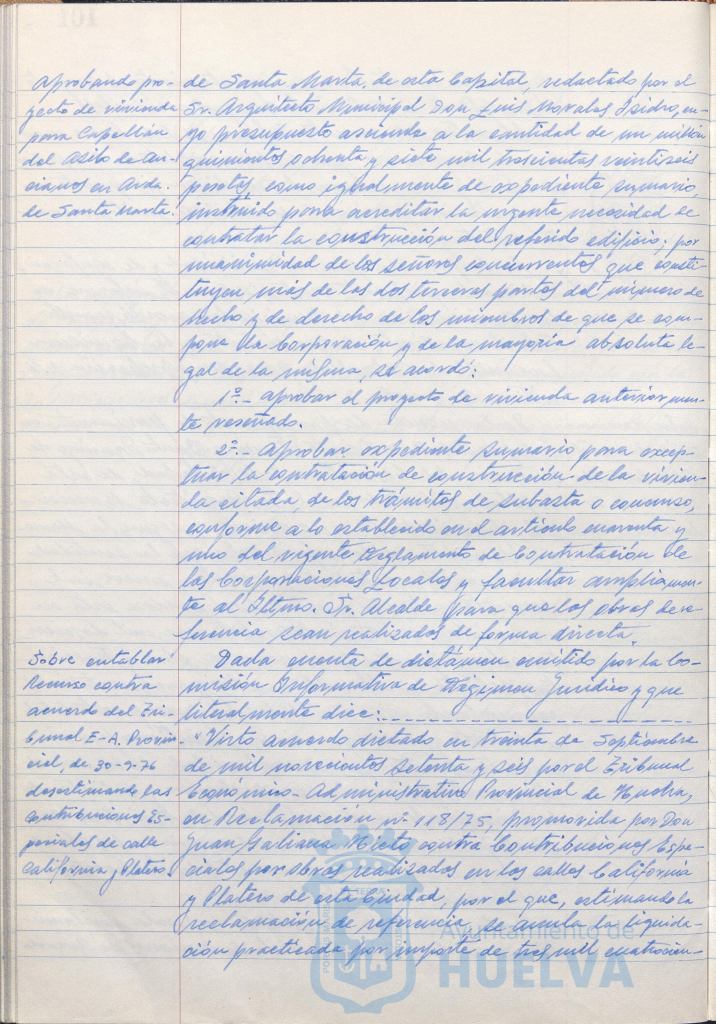 Aprobando pro-
yecto de vivienda
para Capellán
del Asilo de An-
cianos en Avda.
de Santa Marta.
de Santa Marta, de esta Capital, redactado por el
Sr. Arquitecto Municipal Don Luis Morales Isidro, cu-
yo presupuesto asciende a la cantidad de un millón
quinientas ochenta y siete mil trescientas veintiseis
pesetas como igualmente de expediente sumario,
instruido para acreditar la urgente necesidad de
contratar la construcción del referido edificio; por
unanimidad de los señores concurrentes que consti-
tuyen más de las dos terceras partes del número de
hecho y de derecho de los miembros de que se com-
pone la Corporación y de la mayoría absoluta le-
gal de la misma, se acordó:
1º.- Aprobar el proyecto de vivienda anteriormen-
te reseñado.
2º.- Aprobar expediente sumario para excep-
tuar la contratación de construcción de la vivien-
da citada, de los trámites de subasta o concurso,
conforme a lo establecido en el artículo cuarenta y
uno del vigente Reglamento de Contratación de
las Corporaciones Locales y facultar ampliamen-
te al Iltmo. Sr. Alcalde para que las obras de re-
ferencia sean realizadas de forma directa.
Sobre entablar
Recurso contra
acuerdo del Tri-
bunal E-A. Provin-
cial, de 30-9-76
desestimando las
Contribuciones Es-
peciales de calle
California y Platero
Dada cuenta de dictámen emitido por la Co-
misión Informativa de Régimen Jurídico y que
literalmente dice:
"Visto acuerdo dictado en treinta de Septiembre
de mil novecientos setenta y seis por el Tribunal
Económico-Administrativo Provincial de Huelva,
en Reclamación nº 118/75, promovida por Don
Juan Galiana Nieto contra Contribuciones Espe-
ciales por obras realizadas en las calles California
y Platero de esta Ciudad, por el que, estimando la
reclamación de referencia, se anula la liquida-
ción practicada por importe de tres mil cuatrocien-
Ayuntamiento de
HUELVA